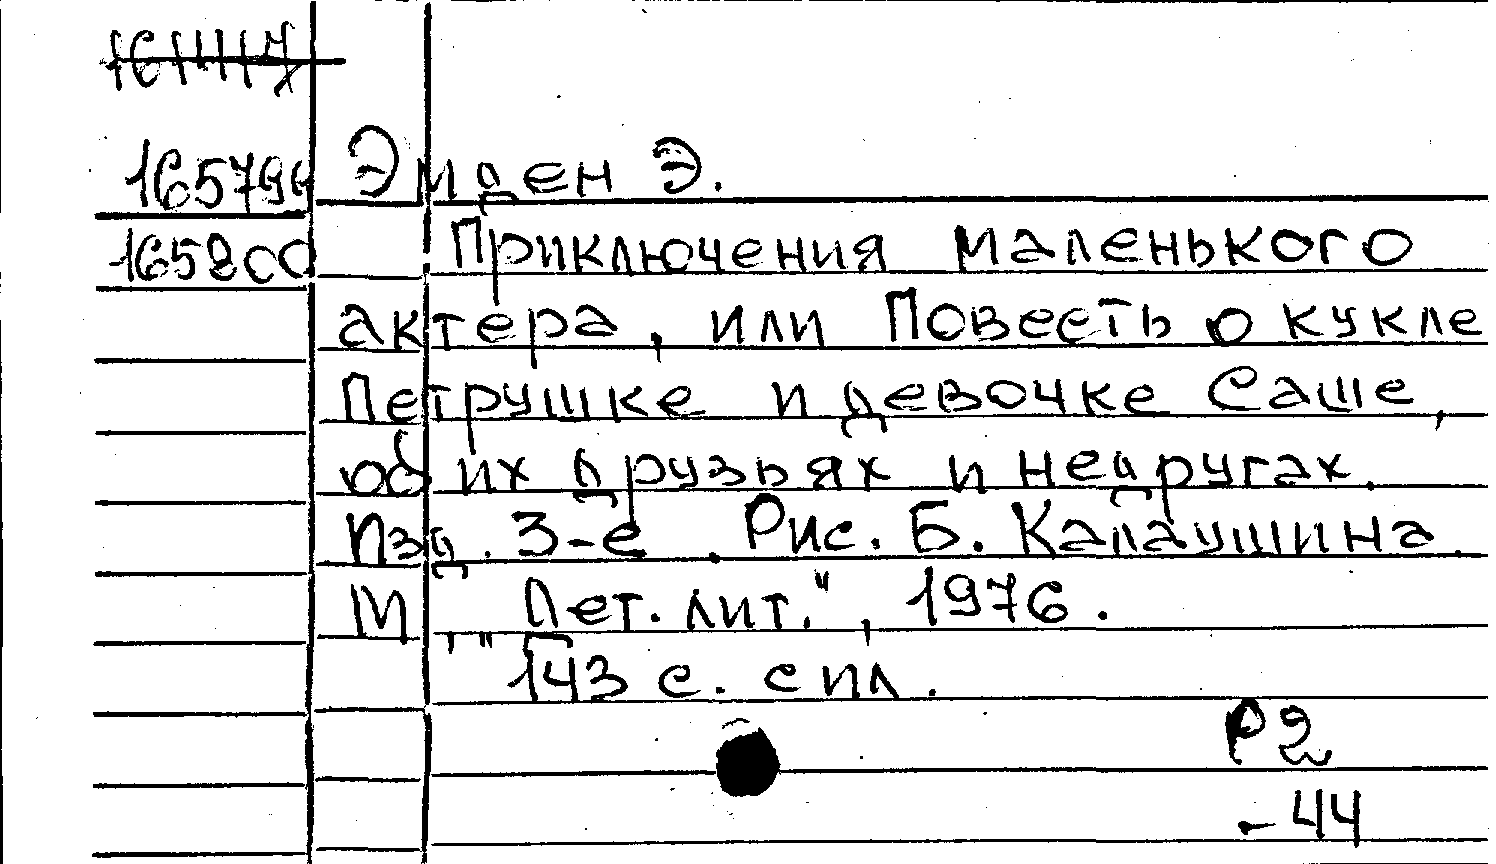 Эмден Э.
165800
Приключения маленького
актера, или Повесть о кукле
Петрушке и девочке Саше,
об их друзьях и недругах.
Изд. 3-е. Рис. Б. Калаушина.
М., "Дет. лит.", 1976.
143 с. с ил.
Р2
-44